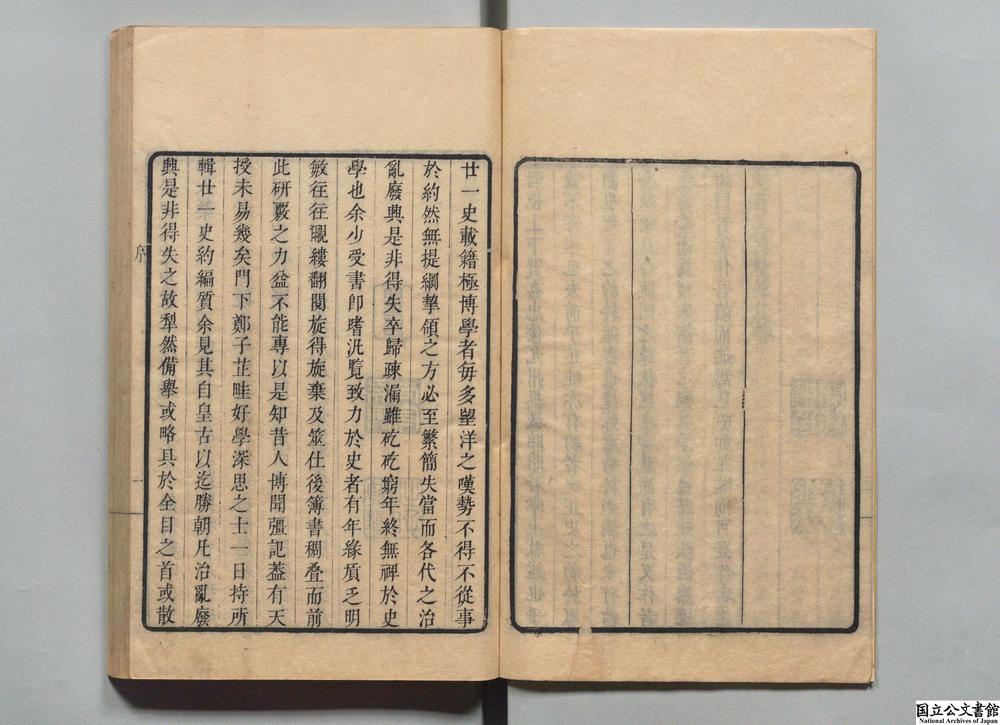 廿一史載籍極博學者每多望洋之嘆勢不得不從事
於約然無提綱挈領之方必至繁簡失當而各代之治
亂廢興是非得失卒歸疎漏雖矻矻窮年終無裨於史
學也余少受書卽嗜汎覽致力於史者有年緣質乏明
敏往往覼縷翻閱旋得旋棄及筮仕後簿書稠叠而前
此研覈之力益不能專以是知昔人博聞彊記蓋有天
授未易幾矣門下鄭子芷畦好學深思之士一日持所
輯廿一史約編質余見其自皇古以迄勝朝凡治亂廢
興是非得失之故犁然備舉或略具於全目之首或散
序
一
国立公文書館
National Archives of Japan